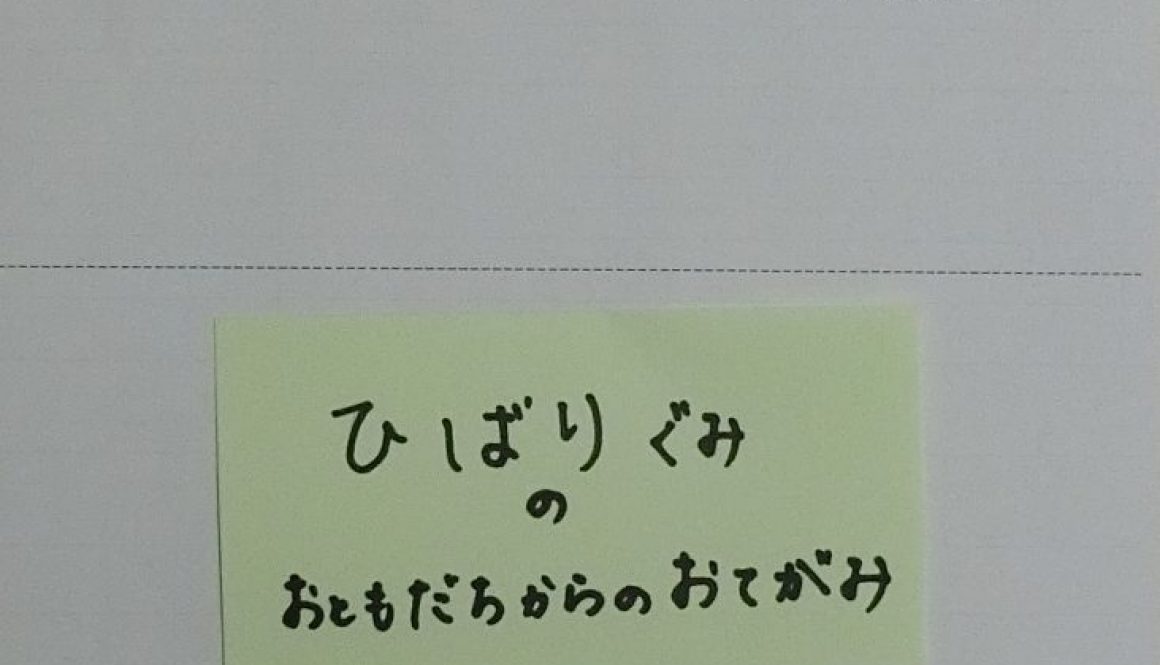 ひばりぐみ
の
おともだちからのおてがみ